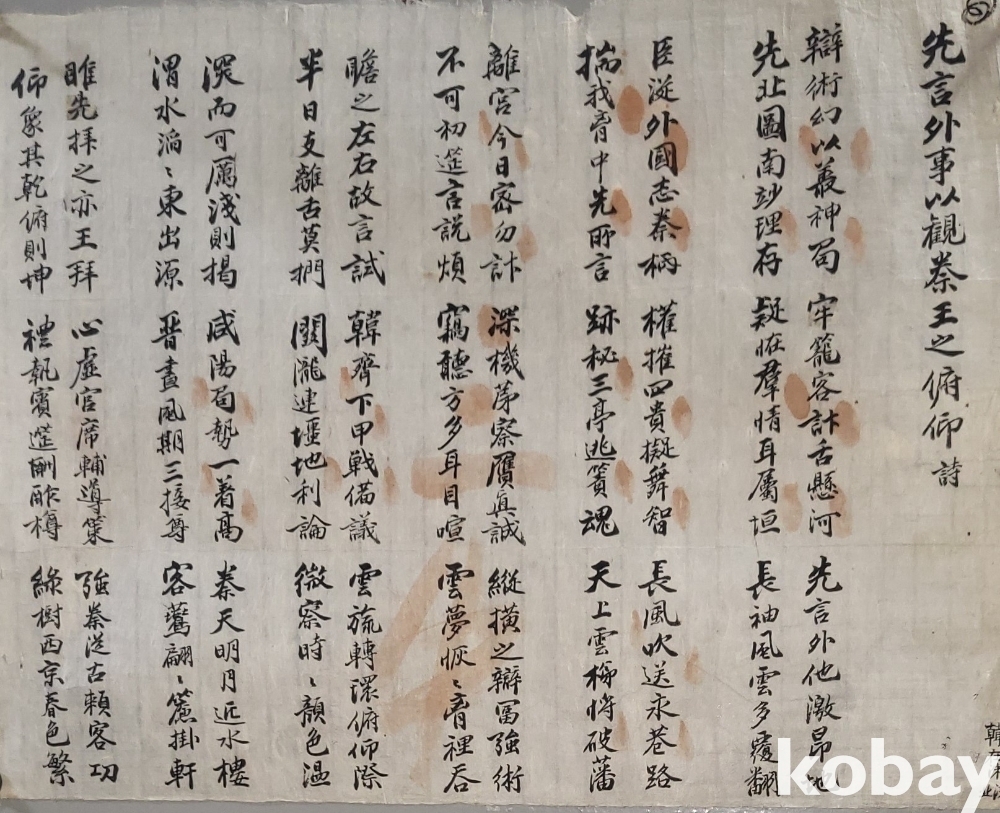 先言外事以觀秦王之俯仰 詩
辯術幻以義神蜀 牢籠客計舌懸河 先言外他激昂地
先北圖南竗理存 疑在羣情耳屬垣 長袖風雲多覆翻
臣從外國志秦柄 權摧四貴擬舞智 長風吹送永巷路
揣我胷中先所言 跡秘三亭逃簀魂 天上雲梯將破藩
離宮今日密勿計 深機芽察贋眞誠 縱橫之辯冨強術
不可初筵言說煩 竊聽方多耳目喧 雲夢恢〻胷裡呑
瞻之左右故言試 韓齊下甲戰備議 雲旒轉環俯仰際
半日支離舌莫捫 關隴連壃地利論 微察時〻顔色溫
深而可厲淺則揭 咸陽局勢一着高 秦天明月近水樓
渭水滔〻東出源 晋晝風期三接尊 客鷰翩〻簾掛軒
睢先拜之亦王拜 心虛宮席輔導策 強秦從古賴客功
仰象其乾俯則坤 禮執賓筵酬酢樽 綠樹西京春色繁
kobay